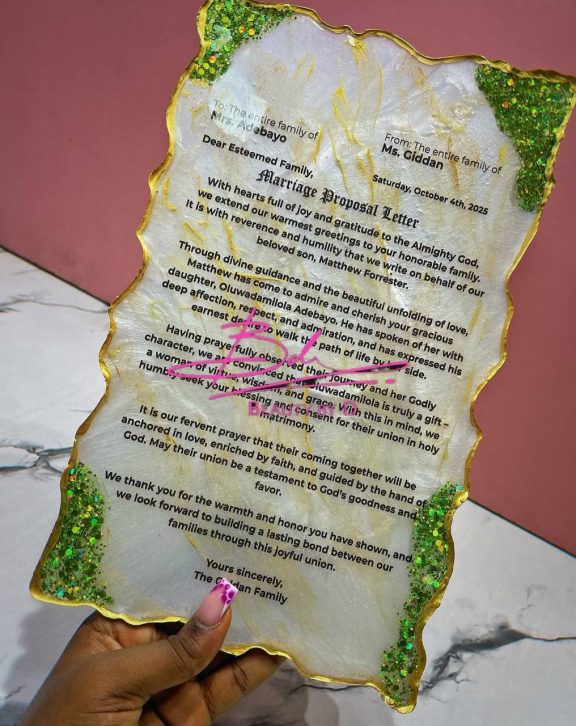 To: The entire family of
Mrs. Adebayo
From: The entire family of
Ms. Giddan
Dear Esteemed Family,
Saturday, October 4th, 2025
Marriage Proposal Letter
With hearts full of joy and gratitude to the Almighty God,
we extend our warmest greetings to your honorable family.
It is with reverence and humility that we write on behalf of our
beloved son, Matthew Forrester.
Through divine guidance and the beautiful unfolding of love,
Matthew has come to admire and cherish your gracious
daughter, Oluwadamilola Adebayo. He has spoken of her with
deep affection, respect, and admiration, and has expressed his
earnest to walk the path of life by side.
Having prayerfully observed their journey and her Godly
character, we are convinced that Oluwadamilola is truly a gift –
a woman of virtue, wisdom, and grace. With this in mind, we
humbly seek your blessing and consent for their union in holy
matrimony.
It is our fervent prayer that their coming together will be
anchored in love, enriched by faith, and guided by the hand of
God. May their union be a testament to God's goodness and
favor.
We thank you for the warmth and honor you have shown, and
we look forward to building a lasting bond between our
families through this joyful union.
Yours sincerely,
The Giddan Family